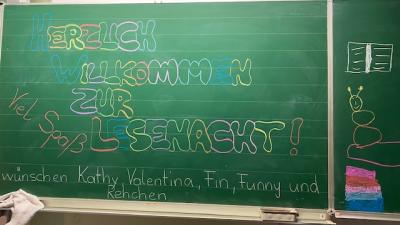 HERZLICH
WILLKOMMEN
ZUR
LESENACHT!
Viel
Spaß
wünschen Kathy, Valentina, Fin, Funny und
Rehchen